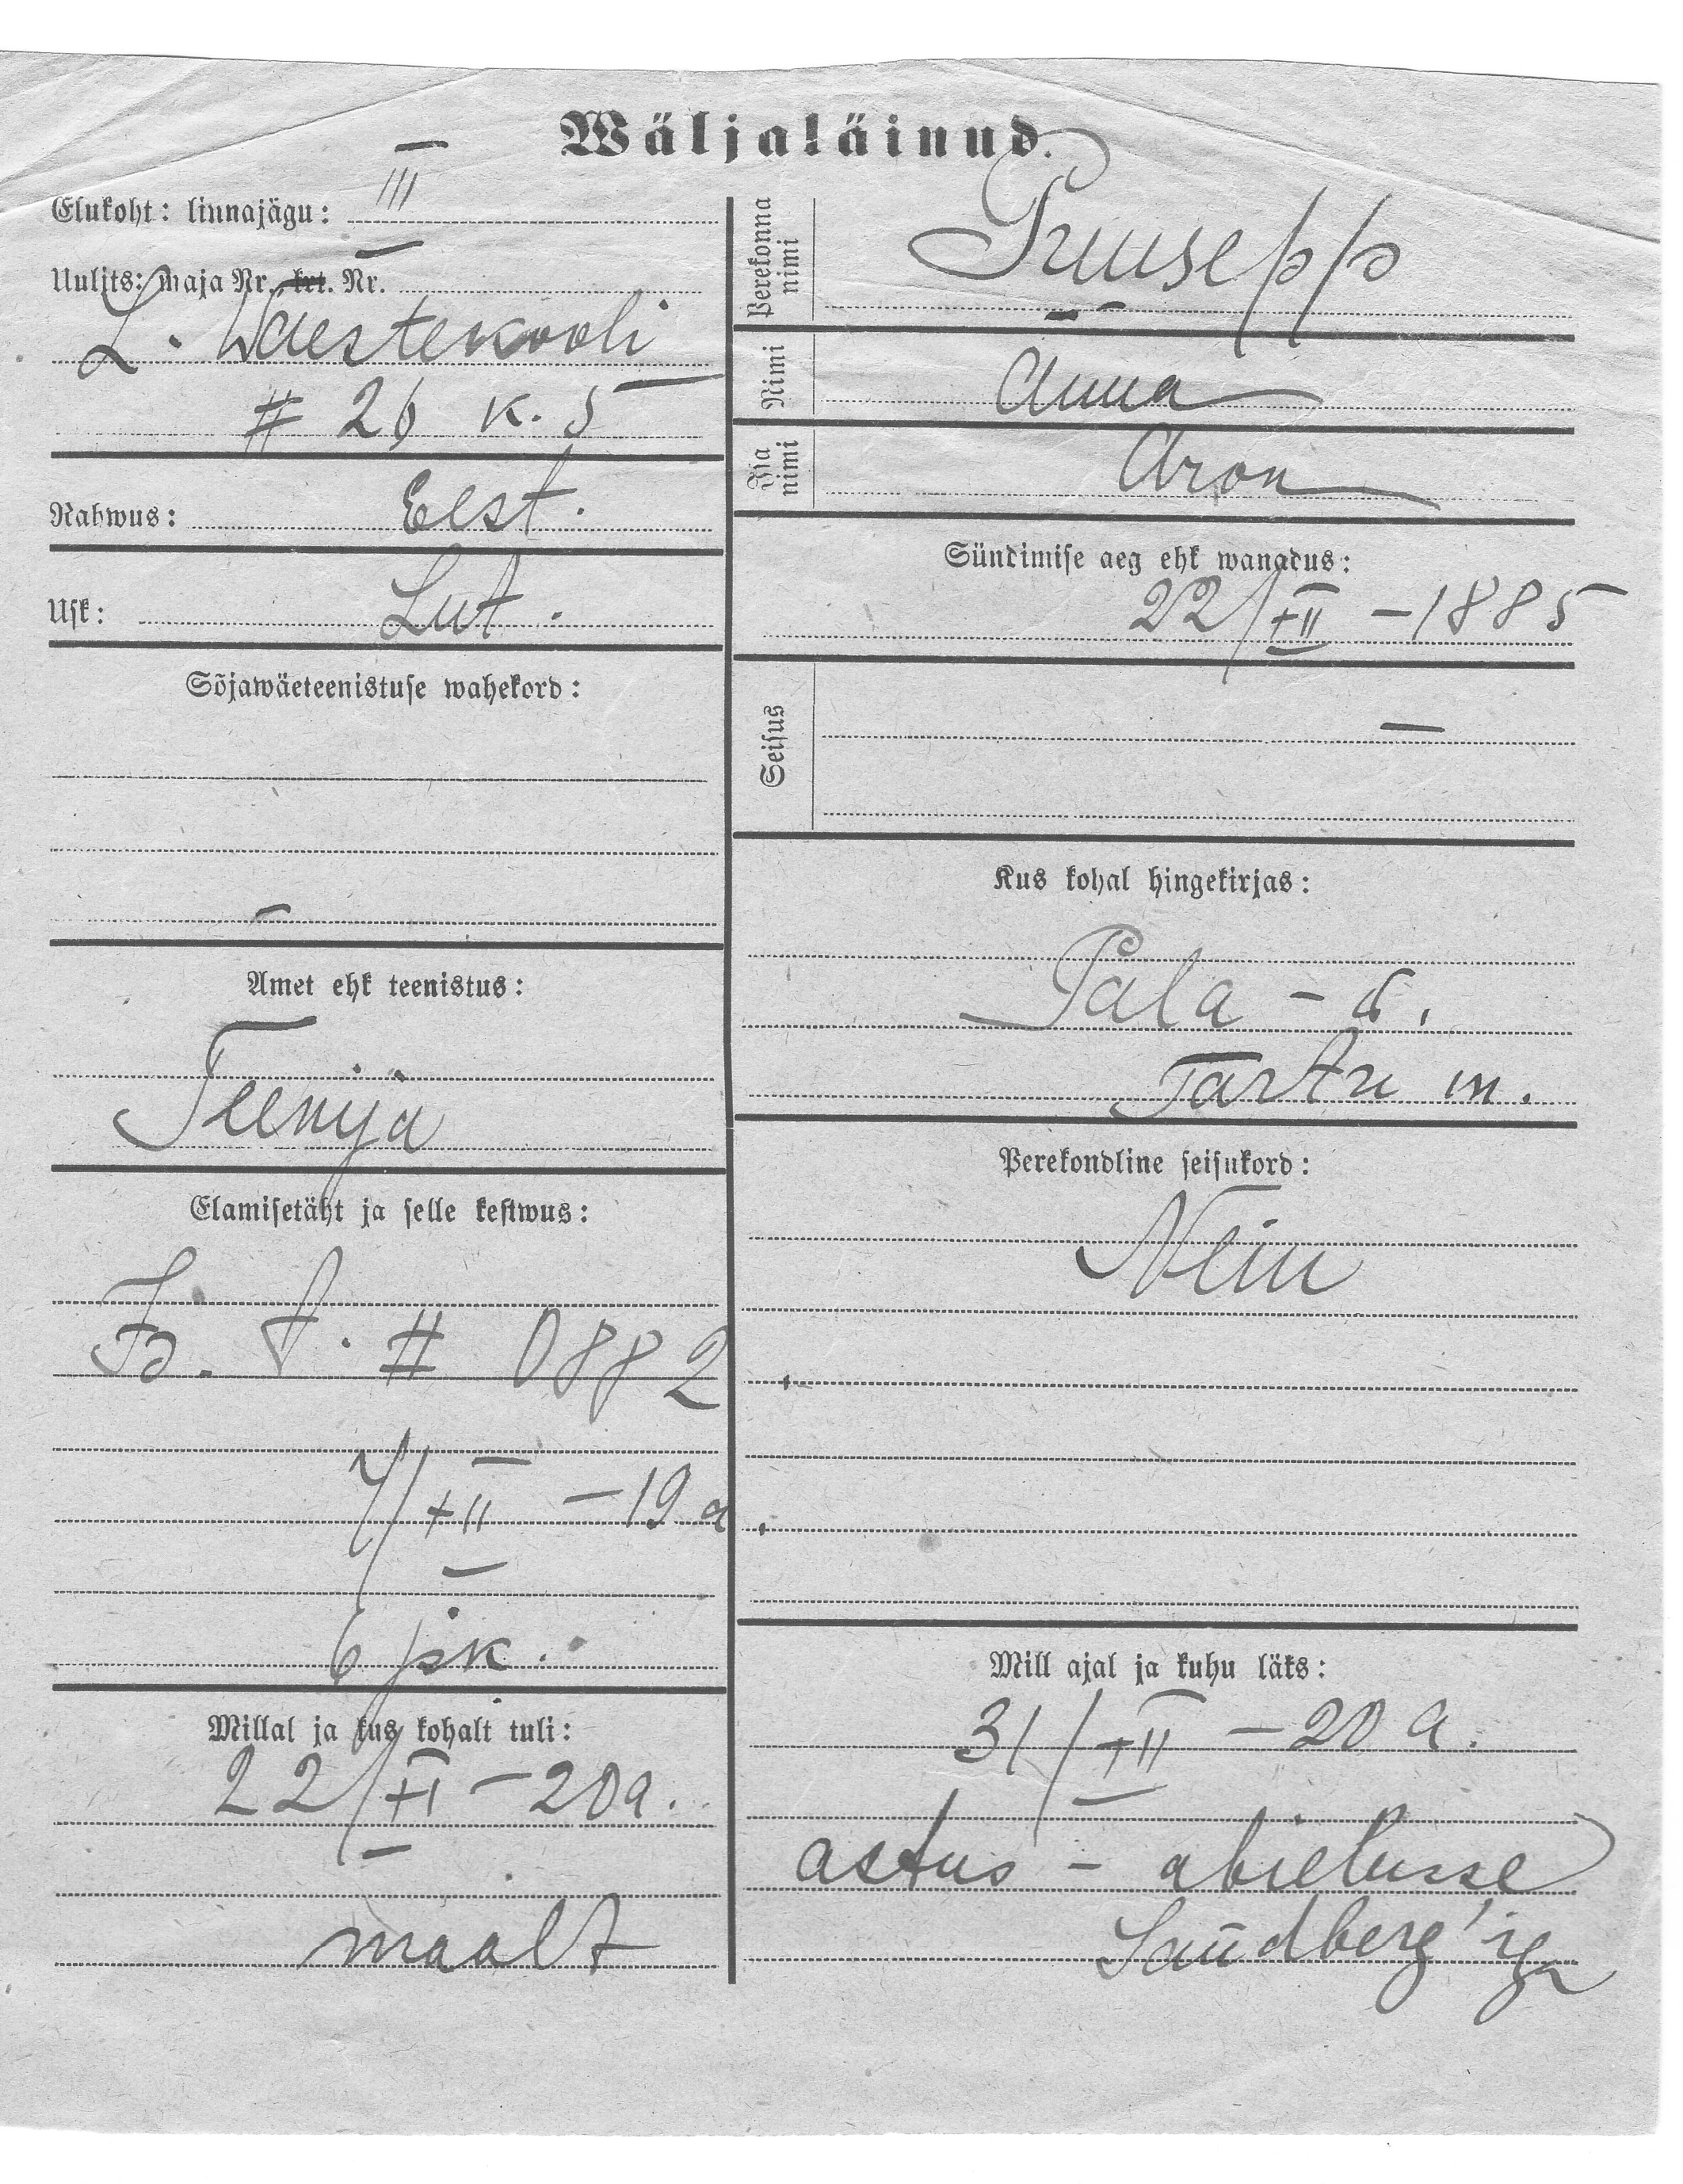 Wäljaläinud.
Elukoht: linnajägu: III
Uulits: maja Nr. krt. Nr.
L. Waestekooli
# 26 k. 5
Rahwus: Eest.
Usk: Lut.
Sõjawäeteenistuse wahekord:
—
Amet ehk teenistus:
Teenija
Elamisetäht ja selle kestwus:
# 0882
7/XII – 19 a.
6 jsk.
Millal ja kus kohalt tuli:
22/XI – 20 a.
maalt
Perekonna nimi
Puusepp
Nimi
Anna
Isa nimi
Aron
Sündimise aeg ehk wanadus:
22/XII – 1885
Seisus
—
Kus kohal hingekirjas:
Pala – w.
Tartu m.
Perekondline seisukord:
Neiu
Mill ajal ja kuhu läks:
31/XII – 20 a.
astus – abielusse
Sundberg'iga